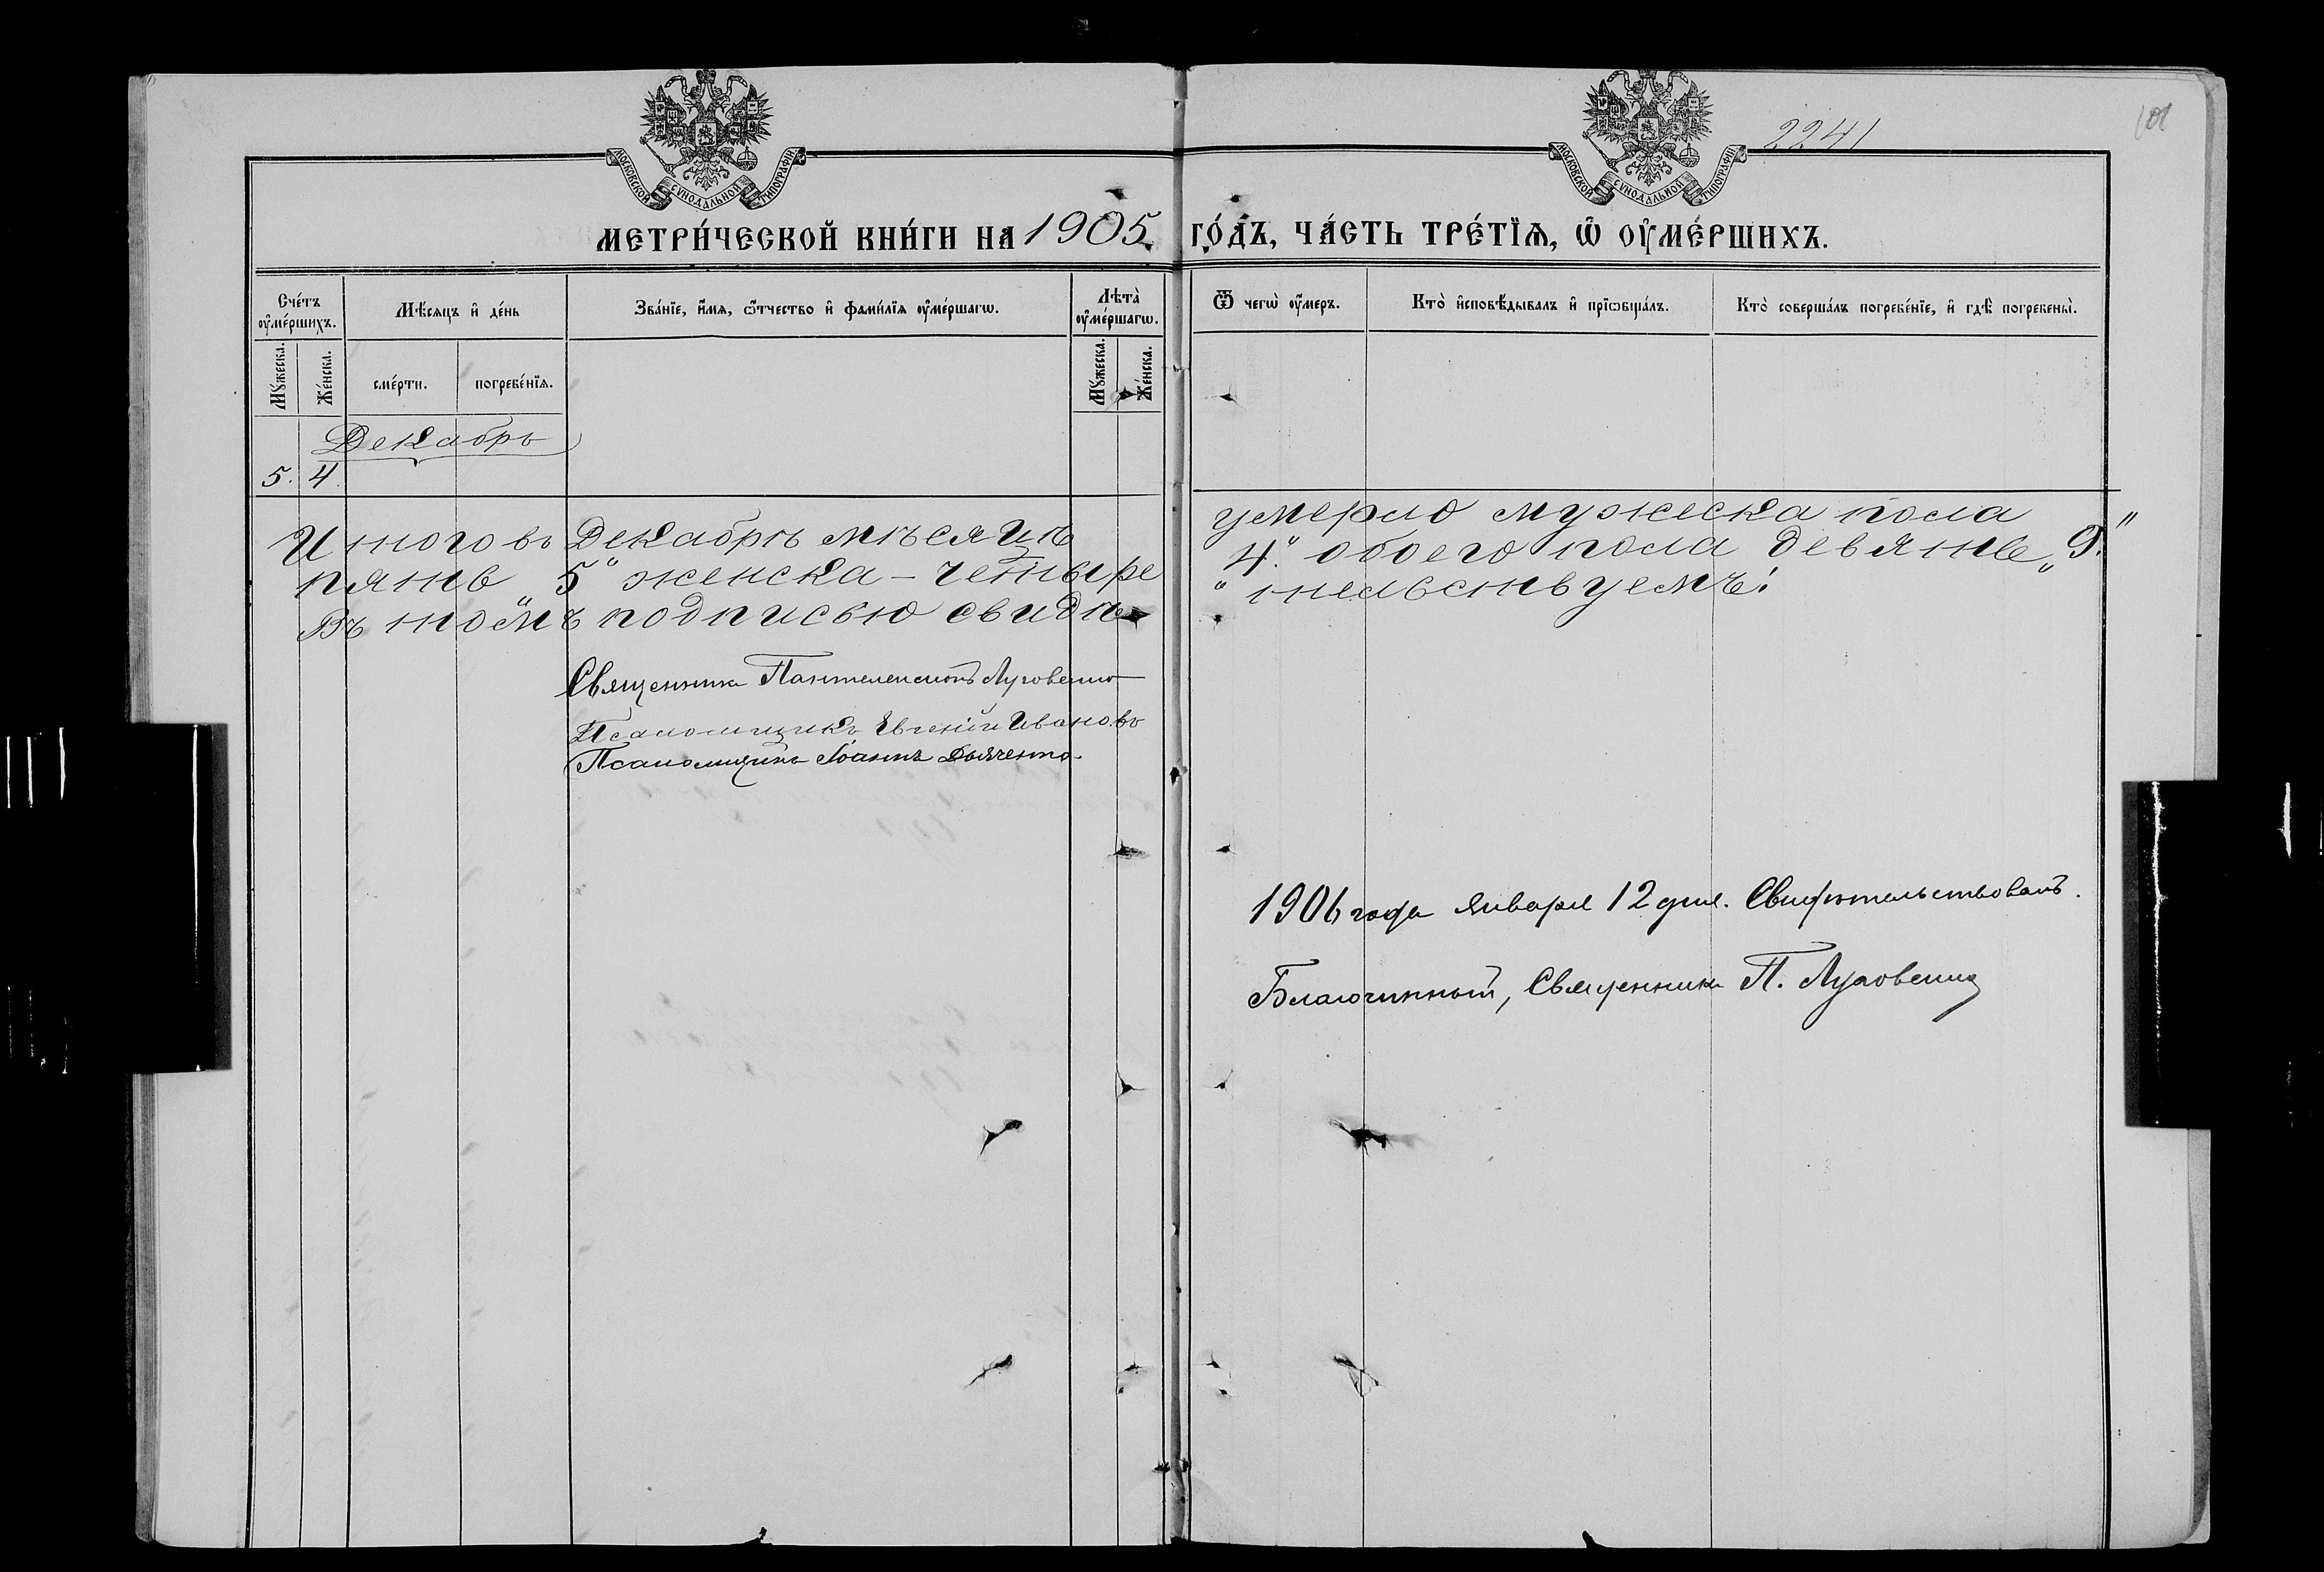 МОСКОВСКОЙ СѴНОДАЛЬНОЙ ТИПОГРАФІИ
МОСКОВСКОЙ СѴНОДАЛЬНОЙ ТИПОГРАФІИ
2241
101
МЕТРИ́ЧЕСКОЙ КНИ́ГИ НА 1905 ГО́ДЪ, ЧА́СТЬ ТРЕ́ТЇѦ, Ѡ҆ ОУ҆МЕ́РШИХЪ.
Сче́тъ оу҆ме́ршихъ.
Мѣ́сяцъ и҆ де́нь
Зва́нїе, и҆́мѧ, ѻ҆́тчество и҆ фами́лїѧ оу҆ме́ршагѡ.
Лѣта̀ оу҆ме́ршагѡ.
Ѿ чегѡ̀ оу҆́меръ.
Кто̀ и҆сповѣ́дывалъ и҆ прїѡбща́лъ.
Кто̀ соверша́лъ погребе́нїе, и҆ гдѣ̀ погребены̀.
Мꙋ́жеска.
Же́нска.
сме́рти.
погребе́нїѧ.
Мꙋ́жеска.
Же́нска.
Декабрь
5. 4.
Итого въ Декабрѣ мѣсяцѣ умерло мужеска пола
пять „5" женска - четыре „4." обоего пола девять „9."
Въ томъ подписью свидѣ- тельствуемъ:
Священникъ Пантелеимонъ Луговенко
Псаломщикъ Евгеній Ивановъ
Псаломщикъ Іоаннъ Дьяченко.
1906 года Января 12 дня. Свидѣтельствовалъ.
Благочинный, Священникъ П. Луговенко